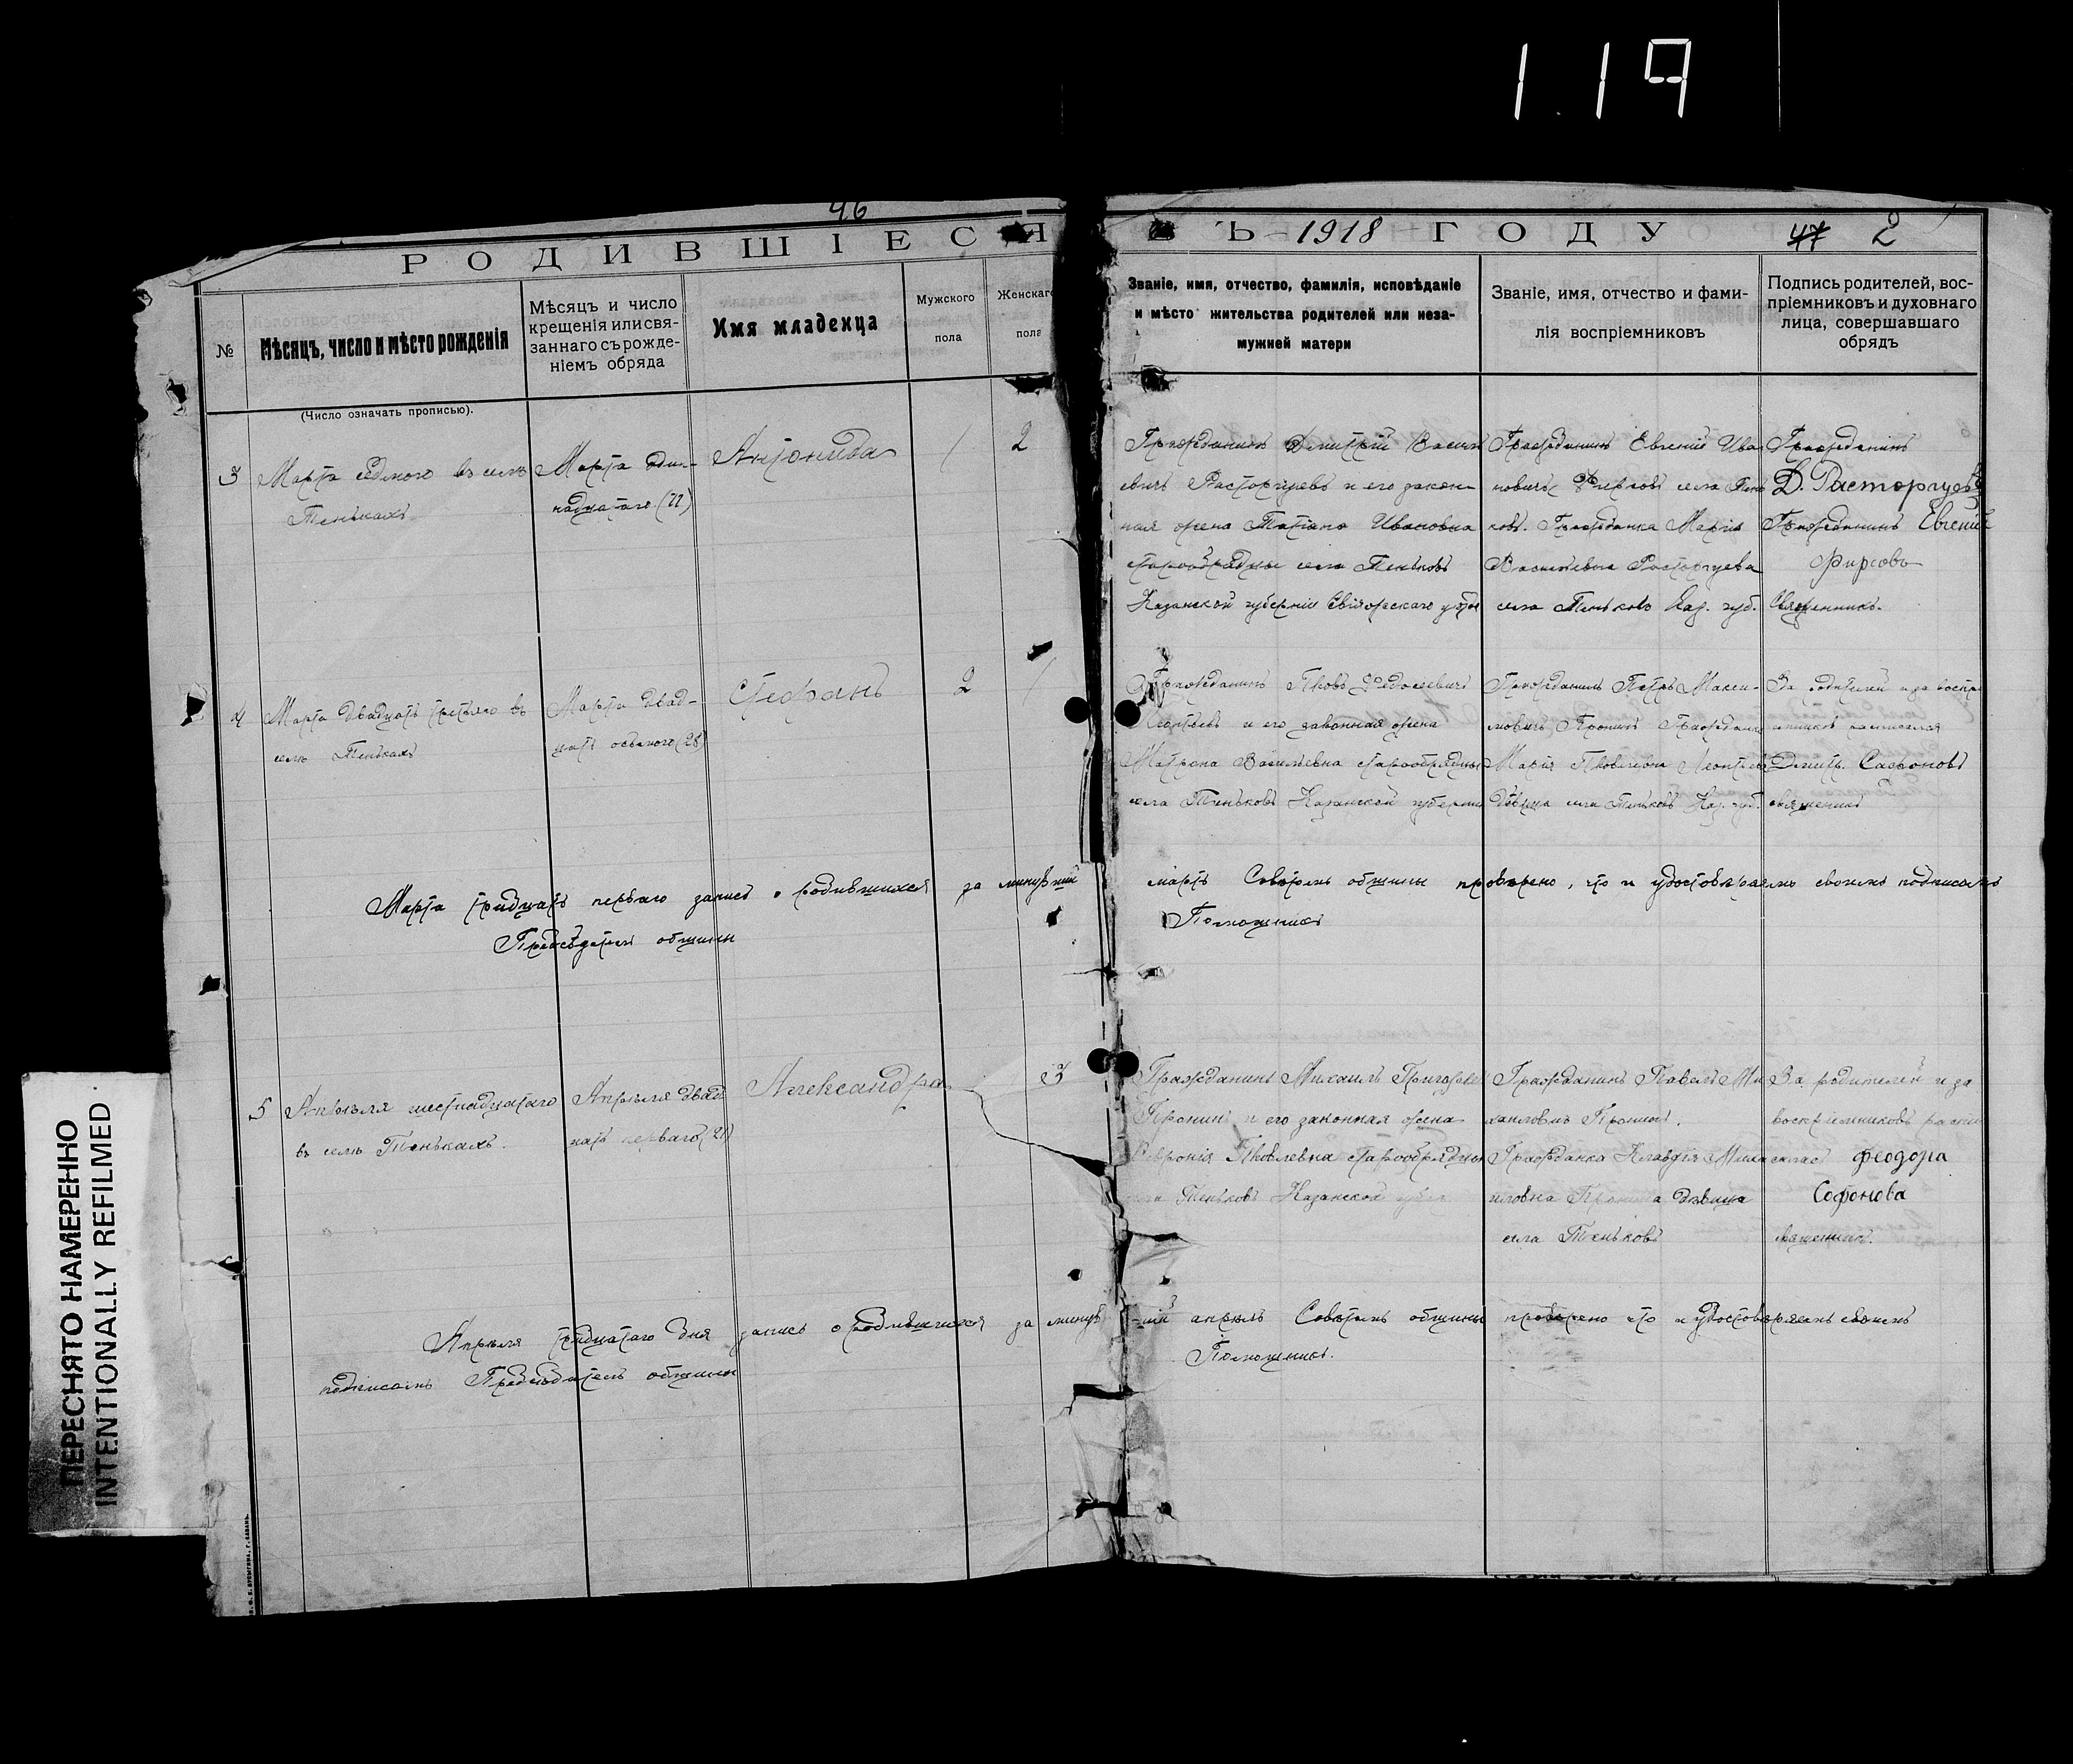 1.19
46
РОДИВШІЕСЯ ВЪ 1918 ГОДУ 47 2
№
Мѣсяцъ, число и мѣсто рожденія
Мѣсяцъ и число
крещенія или свя-
заннаго съ рожде-
ніемъ обряда
Имя младенца
Мужского
пола
Женскаго
пола
Званіе, имя, отчество, фамилія, исповѣданіе
и мѣсто жительства родителей или неза-
мужней матери
Званіе, имя, отчество и фами-
лія воспріемниковъ
Подпись родителей, вос-
пріемниковъ и духовнаго
лица, совершавшаго
обрядъ
(Число означать прописью).
3
Марта седмого въ селѣ
Тенькахъ
Марта один-
надцатаго (11)
Антонида
1
2
Гражданинъ Димитрій Васил
евичъ Расторгуевъ и его закон-
ная жена Татіана Ивановна
старообрядцы села Теньковъ
Казанской губерніи Свіяжскаго уѣзда
Гражданинъ Евгеній Ива
новичъ Фирсовъ села Тень
ковъ. Гражданка Марія
Васильевна Расторгуева
села Теньковъ Каз. губ.
Гражданинъ
Д. Расторгуевъ
Гражданинъ Евгеній
Фирсовъ
Священникъ.
4
Марта двадцать третьяго въ
селѣ Тенькахъ
Марта двад-
цать осьмого (28)
Стефанъ
2
1
Гражданинъ Яковъ Федосеевичъ
Леонтьевъ и его законная жена
Матрона Васильевна старообрядцы
села Теньковъ Казанской губерніи
Гражданинъ Петръ Макси-
мовичъ Пронинъ Гражданка
Марія Яковлевна Леонтьева
дѣвица села Теньковъ Каз. губ.
За родителей и за воспр-
емниковъ расписался
Димитр. Сафоновъ
священникъ
Марта тридцать перваго запись о родившихся за минувшій мартъ Совѣтомъ общины провѣрено, что и удостовѣряемъ своимъ подписомъ
Предсѣдатель общины Помощникъ
5
Апрѣля шестнадцатаго
въ селѣ Тенькахъ.
Апрѣля двад
цать перваго (21)
Александра
3
Гражданинъ Михаилъ Григорьев
Пронинъ и его законная жена
Февронія Яковлевна старообрядцы
села Теньковъ Казанской губер
Гражданинъ Павелъ Ми
хаиловичъ Пронинъ.
Гражданка Клавдія Миха
иловна Пронина дѣвица
села Теньковъ
За родителей и за
воспріемниковъ распи
сался Феодора
Софонова
священникъ.
Апрѣля тридцатаго дня запись о родившихся за минув-шій апрѣль Совѣтомъ общины провѣрено что и удостовѣряемъ своимъ
подписомъ Предсѣдатель общины Помощникъ.
ПЕРЕСНЯТО НАМЕРЕННО
INTENTIONALLY REFILMED